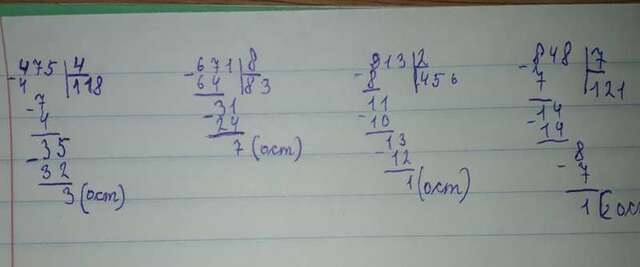 -475 4
4 118
-7
4
-35
32
3 (ост)
-671 8
64 83
-31
24
7 (ост)
-913 2
8 456
11
-10
13
-12
1 (ост)
-848 7
7 121
14
-14
8
-7
1 (ост